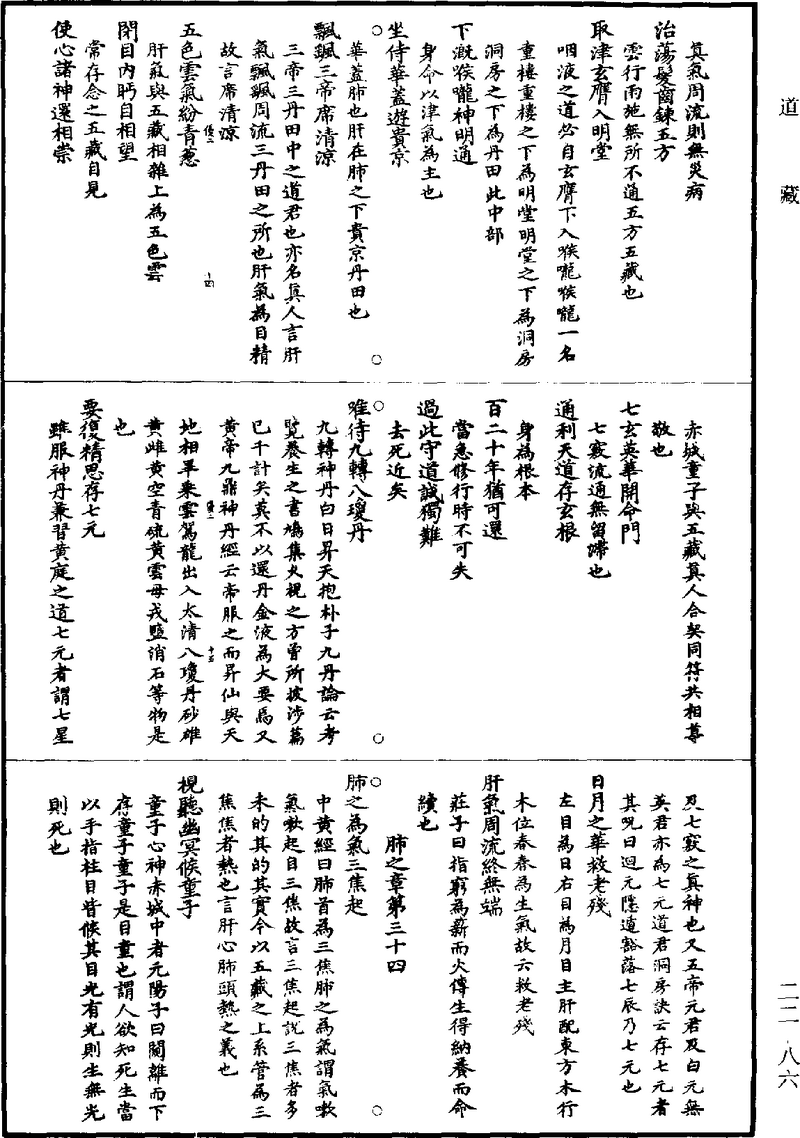 道藏
真氣周流則無災病
治蕩髮齒鍊五方
雲行雨施無所不通五方五藏也
取津玄膺入明堂
咽液之道必自玄膺下入喉嚨喉嚨一名
重樓重樓之下為明堂明堂之下為洞房
洞房之下為丹田此中部
下溉喉嚨神明通
身命以津氣為主也
坐侍華蓋遊貴京
華蓋肺也肝在肺之下貴京丹田也
飄颻三帝席清涼
三帝三丹田中之道君也亦名真人言肝
氣飄颻周流三丹田之所也肝氣為目精
故言席清涼
五色雲氣紛青蔥
肝氣與五藏相雜上為五色雲
閉目內眄自相望
常存念之五藏自見
使心諸神還相崇
赤城童子與五藏真人合契同符共相尊
敬也
七玄英華開命門
七竅流通無留滯也
通利天道存玄根
身為根本
百二十年猶可還
當急修行時不可失
過此守道誠獨難
去死近矣
唯待九轉八瓊丹
九轉神丹白日昇天抱朴子九丹論云考
覽養生之書鳩集久視之方曾所披涉篇
已千計矣莫不以還丹金液為大要焉又
黃帝九鼎神丹經云帝服之而昇仙與天
地相畢乘雲駕龍出入太清八瓊丹砂雄
黃雌黃空青硫黃雲母戎鹽消石等物是
也
要復精思存七元
雖服神丹兼習黃庭之道七元者謂七星
及七竅之真神也又五帝元君及白元無
英君亦為七元道君洞房訣云存七元者
其呪曰迴元隱遁豁落七辰乃七元也
日月之華救老殘
左目為日右目為月目主肝配東方木行
木位春春為生氣故云救老殘
肝氣周流終無端
莊子曰指窮為薪而火傳生得納養而命
續也
肺之章第三十四
肺之為氣三焦起
中黃經曰肺首為三焦肺之為氣謂氣嗽
氣嗽起自三焦故言三焦起說三焦者多
未的其的其實今以五藏之上系管為三
焦焦者熱也言肝心肺頭熱之義也
視聽幽冥候童子
童子心神赤城中者元陽子曰閤離而下
存童子童子是目童也謂人欲知死生當
以手指柱目眥候其目光有光則生無光
則死也
二二·八六